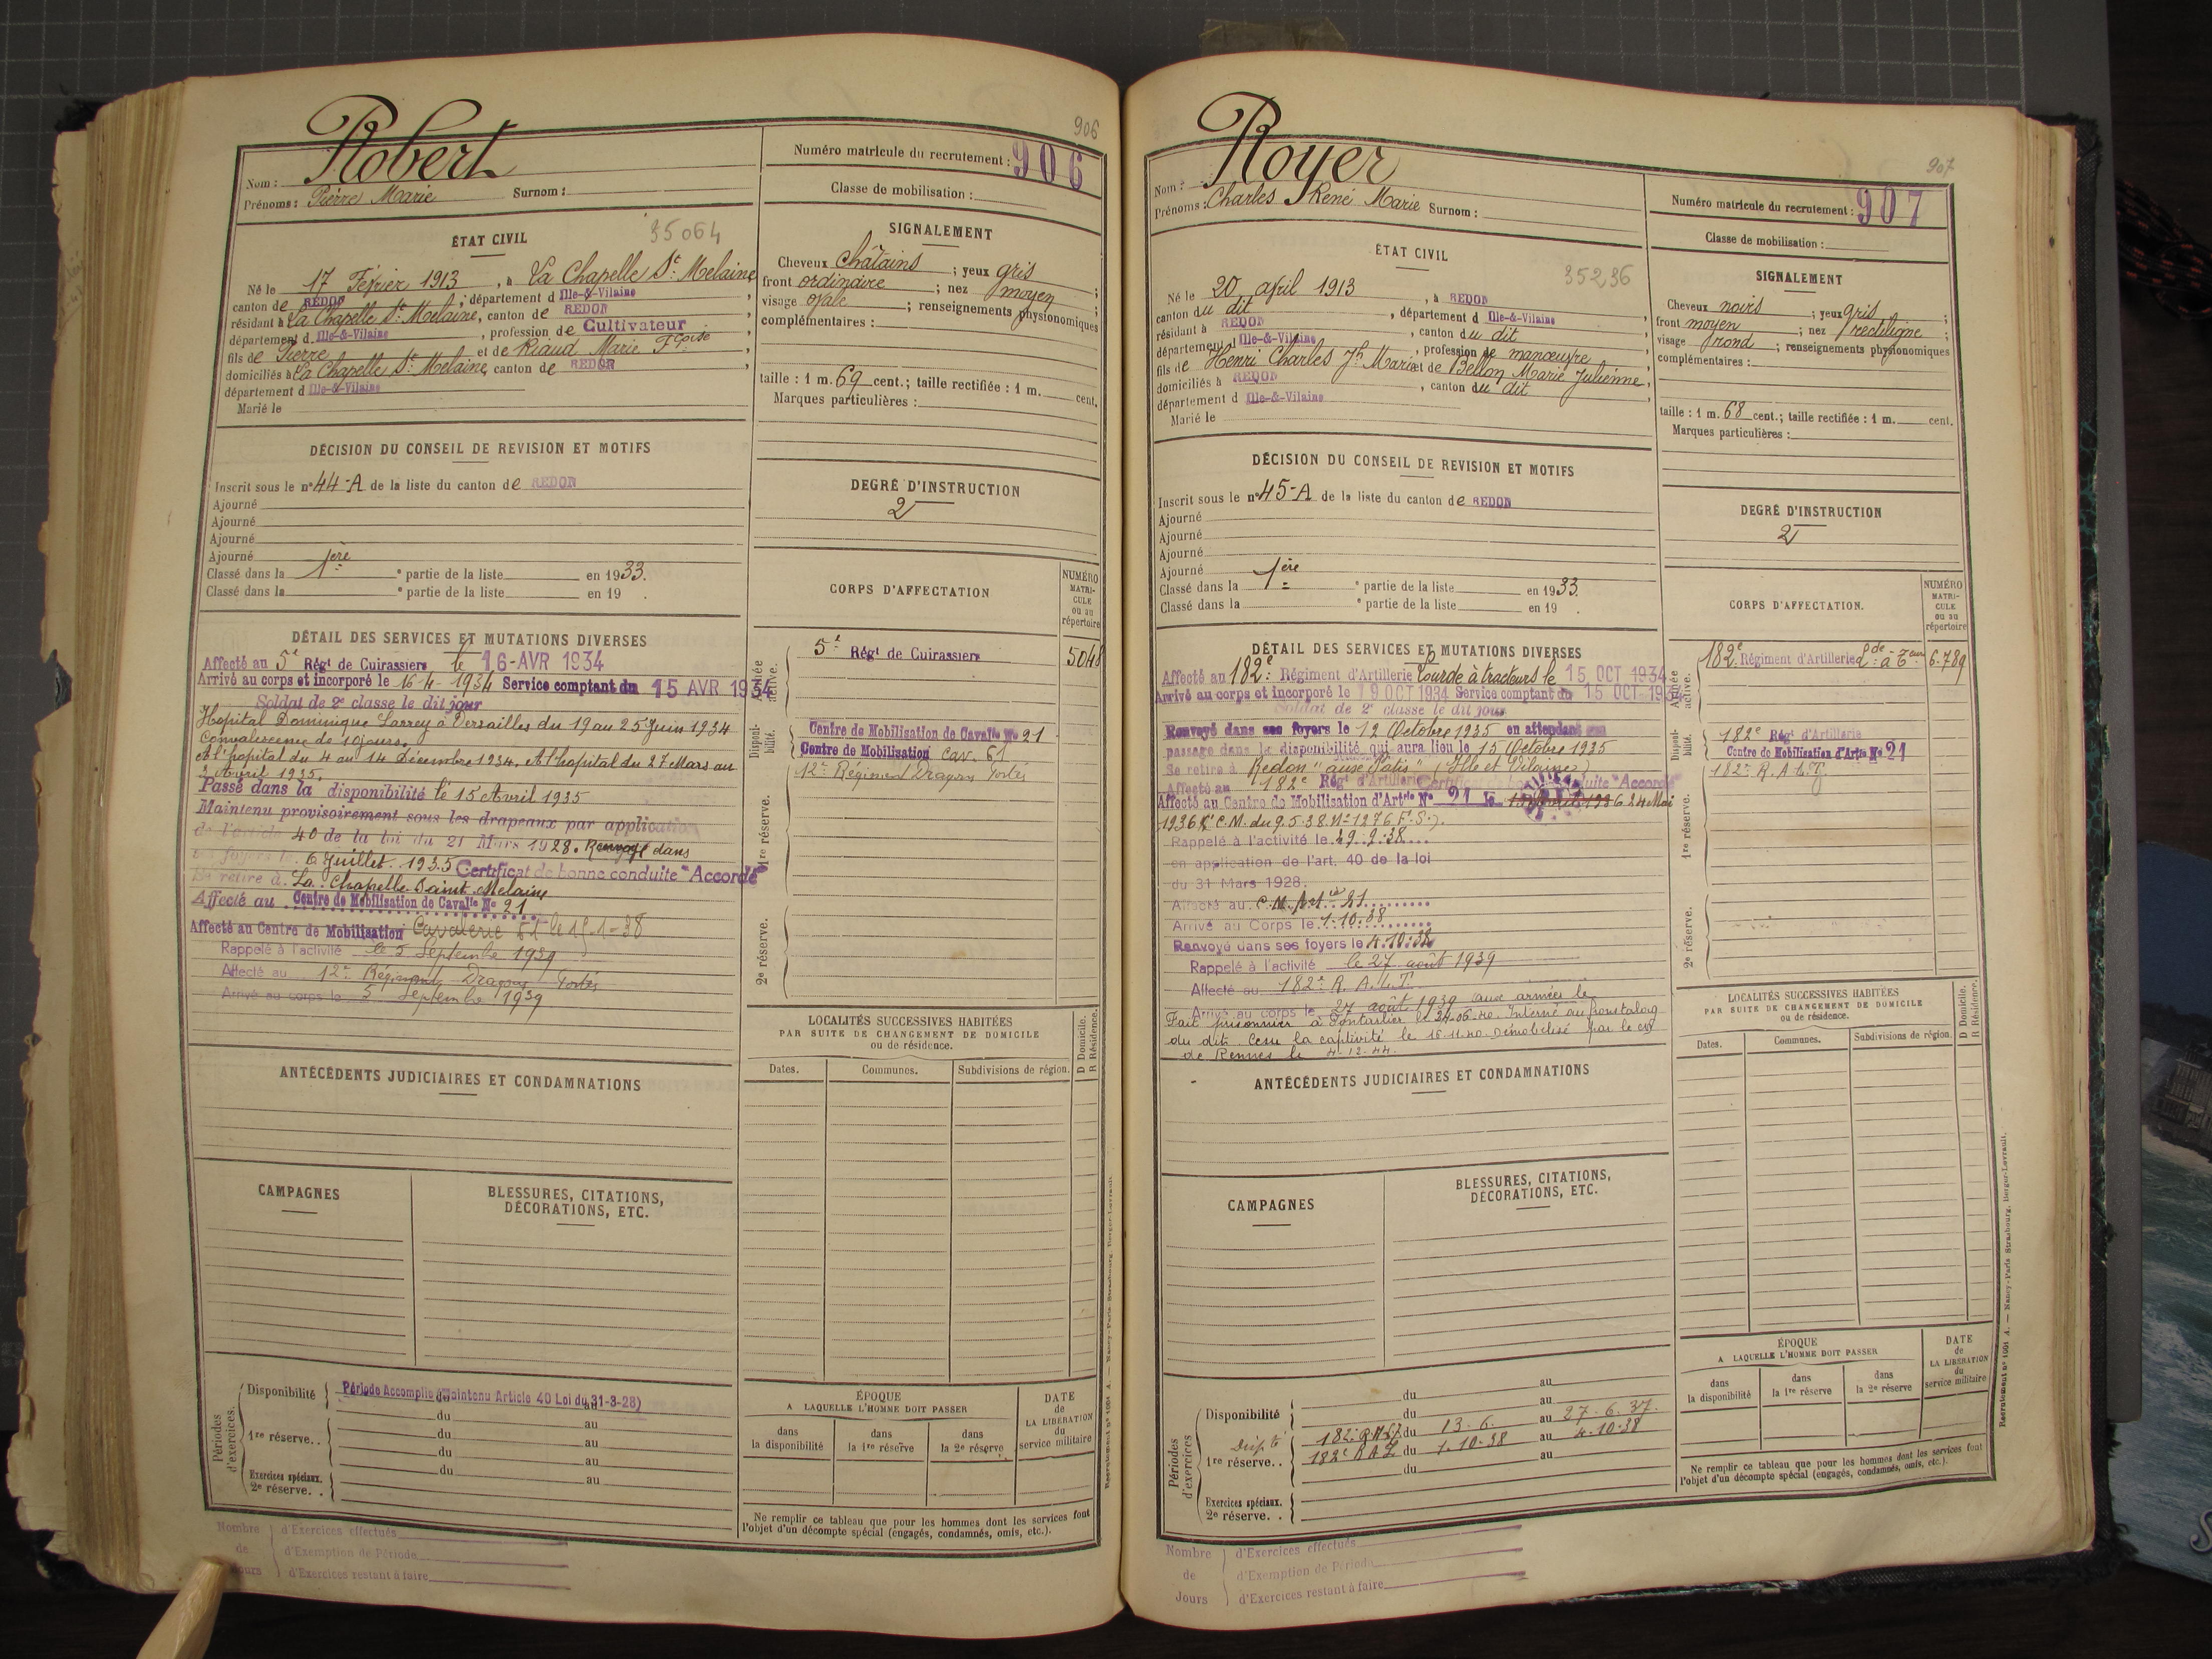 906
Robert
Nom :
Prénoms : Pierre Marie Surnom :
Numéro matricule du recrutement : 906
Classe de mobilisation :
ÉTAT CIVIL
35064
Né le 17 Février 1913, à La Chapelle St Melaine,
canton de REDON ; département d Ille-&-Vilaine,
résidant à La Chapelle St Melaine, canton de REDON
département d Ille-&-Vilaine, profession de Cultivateur,
fils de Pierre et de Riaud Marie Fçoise
domiciliés à La Chapelle St Melaine, canton de REDON,
département d Ille-&-Vilaine
Marié le
SIGNALEMENT
Cheveux châtains ; yeux gris
front ordinaire ; nez moyen ;
visage ovale ; renseignements physionomiques
complémentaires :
taille : 1 m. 69 cent. ; taille rectifiée : 1 m. cent.
Marques particulières :
DÉCISION DU CONSEIL DE REVISION ET MOTIFS
Inscrit sous le n° 44-A de la liste du canton de REDON
Ajourné
Ajourné
Ajourné
Ajourné
Classé dans la 1ère e partie de la liste en 1933.
Classé dans la e partie de la liste en 19 .
DEGRÉ D'INSTRUCTION
2
DÉTAIL DES SERVICES ET MUTATIONS DIVERSES
Affecté au 5e Régt de Cuirassiers le 16-AVR 1934
Arrivé au corps et incorporé le 16-4-1934 Service comptant du 15 AVR 1934
Soldat de 2e classe le dit jour
Hopital Dominique Larrey à Versailles du 19 au 25 Juin 1934
Convalescence de 10 jours.
A l'hopital du 4 au 14 Décembre 1934. A l'hopital du 27 Mars au
3 Avril 1935.
Passé dans la disponibilité le 15 Avril 1935
Maintenu provisoirement sous les drapeaux par application
de l'article 40 de la loi du 21 Mars 1928. Renvoyé dans
ses foyers le 6 Juillet 1935 Certificat de bonne conduite "Accordé"
Se retire à La Chapelle Saint Melaine
Affecté au Centre de Mobilisation de Cavalie No 21
Affecté au Centre de Mobilisation Cavalerie 61 le 15-1-38
Rappelé à l'activité le 5 Septembre 1939
Affecté au 12e Régiment Dragons Portés
Arrivé au corps le 5 Septembre 1939
CORPS D'AFFECTATION
NUMÉRO MATRICULE ou au répertoire
Armée active.
5e Régt de Cuirassiers 5048
Disponibilité.
Centre de Mobilisation de Cavalie No 21
Centre de Mobilisation Cav. 61
12e Régiment Dragons Portés
1re réserve.
2e réserve.
LOCALITÉS SUCCESSIVES HABITÉES
PAR SUITE DE CHANGEMENT DE DOMICILE
ou de résidence.
D Domicile.
R Résidence.
Dates. Communes. Subdivisions de région.
ANTÉCÉDENTS JUDICIAIRES ET CONDAMNATIONS
CAMPAGNES
BLESSURES, CITATIONS,
DÉCORATIONS, ETC.
Périodes d'exercices.
Disponibilité Période Accomplie (Maintenu Article 40 Loi du 31-3-28)
du au
du au
1re réserve. . du au
du au
du au
Exercices spéciaux.
2e réserve. .
ÉPOQUE
A LAQUELLE L'HOMME DOIT PASSER
dans la disponibilité
dans la 1re réserve
dans la 2e réserve
DATE de LA LIBÉRATION du service militaire
Ne remplir ce tableau que pour les hommes dont les services font
l'objet d'un décompte spécial (engagés, condamnés, omis, etc.).
Nombre de Jours
d'Exercices effectués
d'Exemption de Période
d'Exercices restant à faire
907
Royer
Nom :
Prénoms : Charles René Marie Surnom :
Numéro matricule du recrutement : 907
Classe de mobilisation :
ÉTAT CIVIL
35236
Né le 20 april 1913, à REDON
canton du dit, département d Ille-&-Vilaine,
résidant à REDON, canton du dit
département d Ille-&-Vilaine, profession de manœuvre,
fils de Henri Charles Jh Marie et de Bellon Marie Julienne,
domiciliés à REDON, canton du dit,
département d Ille-&-Vilaine
Marié le
SIGNALEMENT
Cheveux noirs ; yeux gris ;
front moyen ; nez rectiligne ;
visage rond ; renseignements physionomiques
complémentaires :
taille : 1 m. 68 cent. ; taille rectifiée : 1 m. cent.
Marques particulières :
DÉCISION DU CONSEIL DE REVISION ET MOTIFS
Inscrit sous le n° 45-A de la liste du canton de REDON
Ajourné
Ajourné
Ajourné
Ajourné
Classé dans la 1ère e partie de la liste en 1933.
Classé dans la e partie de la liste en 19 .
DEGRÉ D'INSTRUCTION
2
DÉTAIL DES SERVICES ET MUTATIONS DIVERSES
Affecté au 182e Régiment d'Artillerie Lourde à tracteurs le 15 OCT 1934
Arrivé au corps et incorporé le 19 OCT 1934 Service comptant du 15 OCT 1934
Soldat de 2e classe le dit jour
Renvoyé dans ses foyers le 12 Octobre 1935 en attendant son
passage dans la disponibilité qui aura lieu le 15 Octobre 1935
Se retire à Redon "aux Patis" (Ille et Vilaine)
Affecté au 182e Régt d'Artillerie Certificat de bonne conduite "Accordé"
Affecté au Centre de Mobilisation d'Artie No 21 le 24 Mai
1936 (C.M. du 9.5.38 No 1276 F.S.).
Rappelé à l'activité le 29.9.38
en application de l'art. 40 de la loi
du 31 Mars 1928.
Affecté au C.M. Artie 21
Arrivé au Corps le 1.10.38
Renvoyé dans ses foyers le 4.10.38
Rappelé à l'activité le 27 août 1939
Affecté au 182e R.A.L.T.
Arrivé au corps le 27 août 1939 aux armées le
Fait prisonnier à Pontarlier le 24.06.40. Interné au fronstalag
du dit. Cesse la captivité le 16.11.40. Démobilisé par le
de Rennes le 4.12.44.
CORPS D'AFFECTATION.
NUMÉRO MATRICULE ou au répertoire
Armée active.
182e Régiment d'Artillerie Lde à Teurs 6.789
Disponibilité.
182e Régt d'Artillerie
Centre de Mobilisation d'Artie No 21
182e R.A.L.T.
1re réserve.
2e réserve.
LOCALITÉS SUCCESSIVES HABITÉES
PAR SUITE DE CHANGEMENT DE DOMICILE
ou de résidence.
D Domicile.
R Résidence.
Dates. Communes. Subdivisions de région.
ANTÉCÉDENTS JUDICIAIRES ET CONDAMNATIONS
CAMPAGNES
BLESSURES, CITATIONS,
DÉCORATIONS, ETC.
Périodes d'exercices
du au
Disponibilité du au
Dispté 182e R.A.L.T. du 13.6. au 27.6.37.
1re réserve. . 182e RAL du 1.10.38 au 4.10.38
du au
Exercices spéciaux.
2e réserve. .
ÉPOQUE
A LAQUELLE L'HOMME DOIT PASSER
dans la disponibilité
dans la 1re réserve
dans la 2e réserve
DATE de LA LIBÉRATION du service militaire
Ne remplir ce tableau que pour les hommes dont les services font
l'objet d'un décompte spécial (engagés, condamnés, omis, etc.).
Recrutement no 1001 A. — Nancy-Paris-Strasbourg. Berger-Levrault.
Nombre de Jours
d'Exercices effectués
d'Exemption de Période
d'Exercices restant à faire